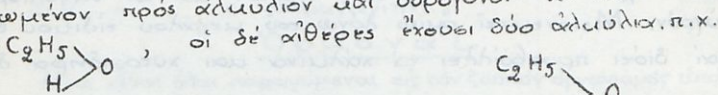 ωμένον πρός ἀλκύλιον καί ὑδρογόνο
C₂H₅
O , οἱ δέ αἰθέρες ἔχουσι δύο ἀλκύλια. π.χ.
H
C₂H₅
O